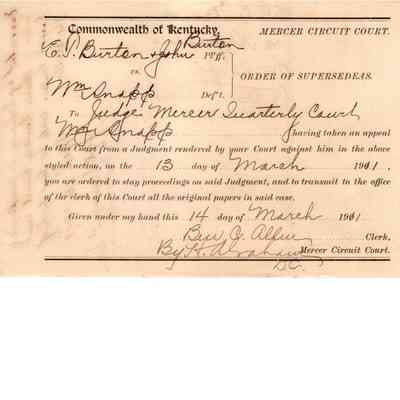 Commonwealth of Kentucky,
MERCER CIRCUIT COURT.
E. P. Burton & John Burton
Pl'ff.
vs.
ORDER OF SUPERSEDEAS.
Wm Snapp Def't.
To Judge Mercer Quarterly Court
Wm Snapp having taken an appeal
to this Court from a Judgment rendered by your Court against him in the above
styled action, on the 13 day of March 1911.
you are ordered to stay proceedings on said Judgment, and to transmit to the office
of the clerk of this Court all the original papers in said case.
Given under my hand this 14 day of March 1911
Ben C. Allin Clerk,
By H. Abraham Mercer Circuit Court.
D.C.